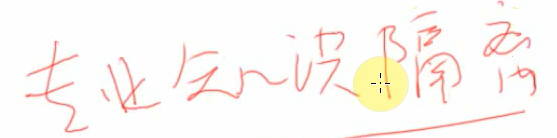 专业知识隔离